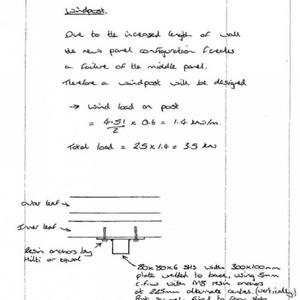 Windpost.
Due to the increased length of wall
the new panel configuration creates
a failure of the middle panel.
Therefore a windpost will be designed
→ Wind load on post
= 4.51/2 x 0.6 = 1.4 kN/m.
Total load = 2.5 x 1.4 = 3.5 kN
Outer leaf
Inner leaf
Resin anchors by
Hilti or equal
80x80x6 SHS with 300x100mm
plate welded to back, using 5mm
c.f.w with M8 resin anchors
at 225mm alternate centres. (vertically)